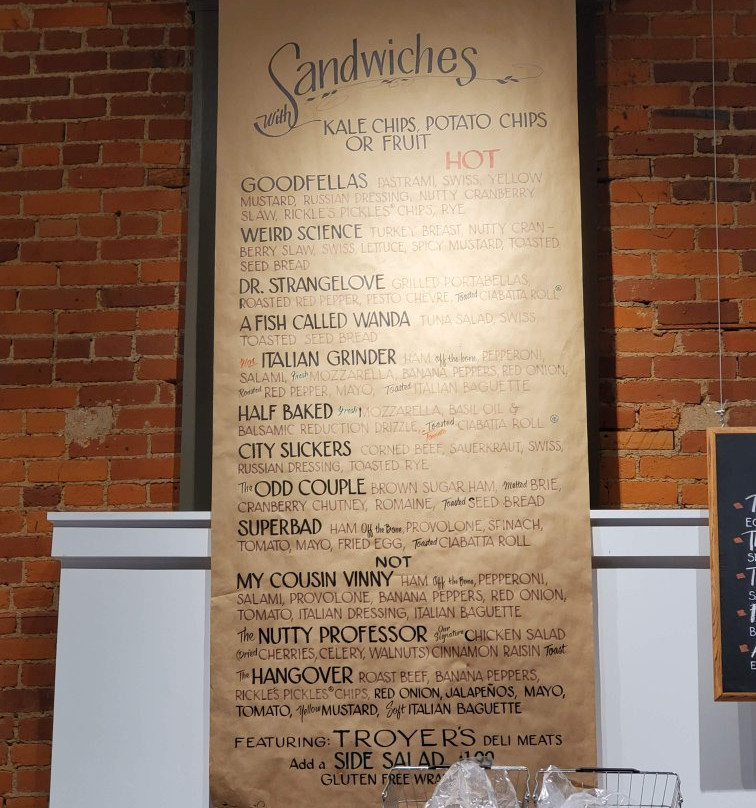 Sandwiches
with KALE CHIPS, POTATO CHIPS
OR FRUIT
HOT
GOODFELLAS PASTRAMI, SWISS, YELLOW
MUSTARD, RUSSIAN DRESSING, NUTTY CRANBERRY
SLAW, RICKLE'S PICKLES® CHIPS, RYE
WEIRD SCIENCE TURKEY BREAST NUTTY CRAN-
BERRY SLAW, SWISS, LETTUCE, SPICY MUSTARD, TOASTED
SEED BREAD
DR. STRANGELOVE GRILLED PORTABELLAS,
ROASTED RED PEPPER, PESTO CHEVRE, Toasted CIABATTA ROLL
A FISH CALLED WANDA TUNA SALAD, SWISS
TOASTED SEED BREAD
ITALIAN GRINDER HAM off the bone, PEPPERONI,
SALAMI, fresh MOZZARELLA, BANANA PEPPERS, RED ONION,
Roasted RED PEPPER, MAYO, Toasted ITALIAN BAGUETTE
HALF BAKED fresh MOZZARELLA, BASIL OIL &
BALSAMIC REDUCTION DRIZZLE, Toasted CIABATTA ROLL
Tomato
CITY SLICKERS CORNED BEEF, SAUERKRAUT, SWISS,
RUSSIAN DRESSING, TOASTED RYE
The ODD COUPLE BROWN SUGAR HAM, Melted BRIE,
CRANBERRY CHUTNEY, ROMAINE, Toasted SEED BREAD
SUPERBAD HAM Off the Bone, PROVOLONE, SPINACH,
TOMATO, MAYO, FRIED EGG, Toasted CIABATTA ROLL
NOT
MY COUSIN VINNY HAM Off the Bone, PEPPERONI,
SALAMI, PROVOLONE, BANANA PEPPERS, RED ONION,
TOMATO, ITALIAN DRESSING, ITALIAN BAGUETTE
The NUTTY PROFESSOR Our Signature CHICKEN SALAD
(Dried CHERRIES, CELERY, WALNUTS) CINNAMON RAISIN Toast
The HANGOVER ROAST BEEF, BANANA PEPPERS,
RICKLE'S PICKLES® CHIPS, RED ONION, JALAPEÑOS, MAYO,
TOMATO, Yellow MUSTARD, Soft ITALIAN BAGUETTE
FEATURING: TROYER'S DELI MEATS
Add a SIDE SALAD
GLUTEN FREE